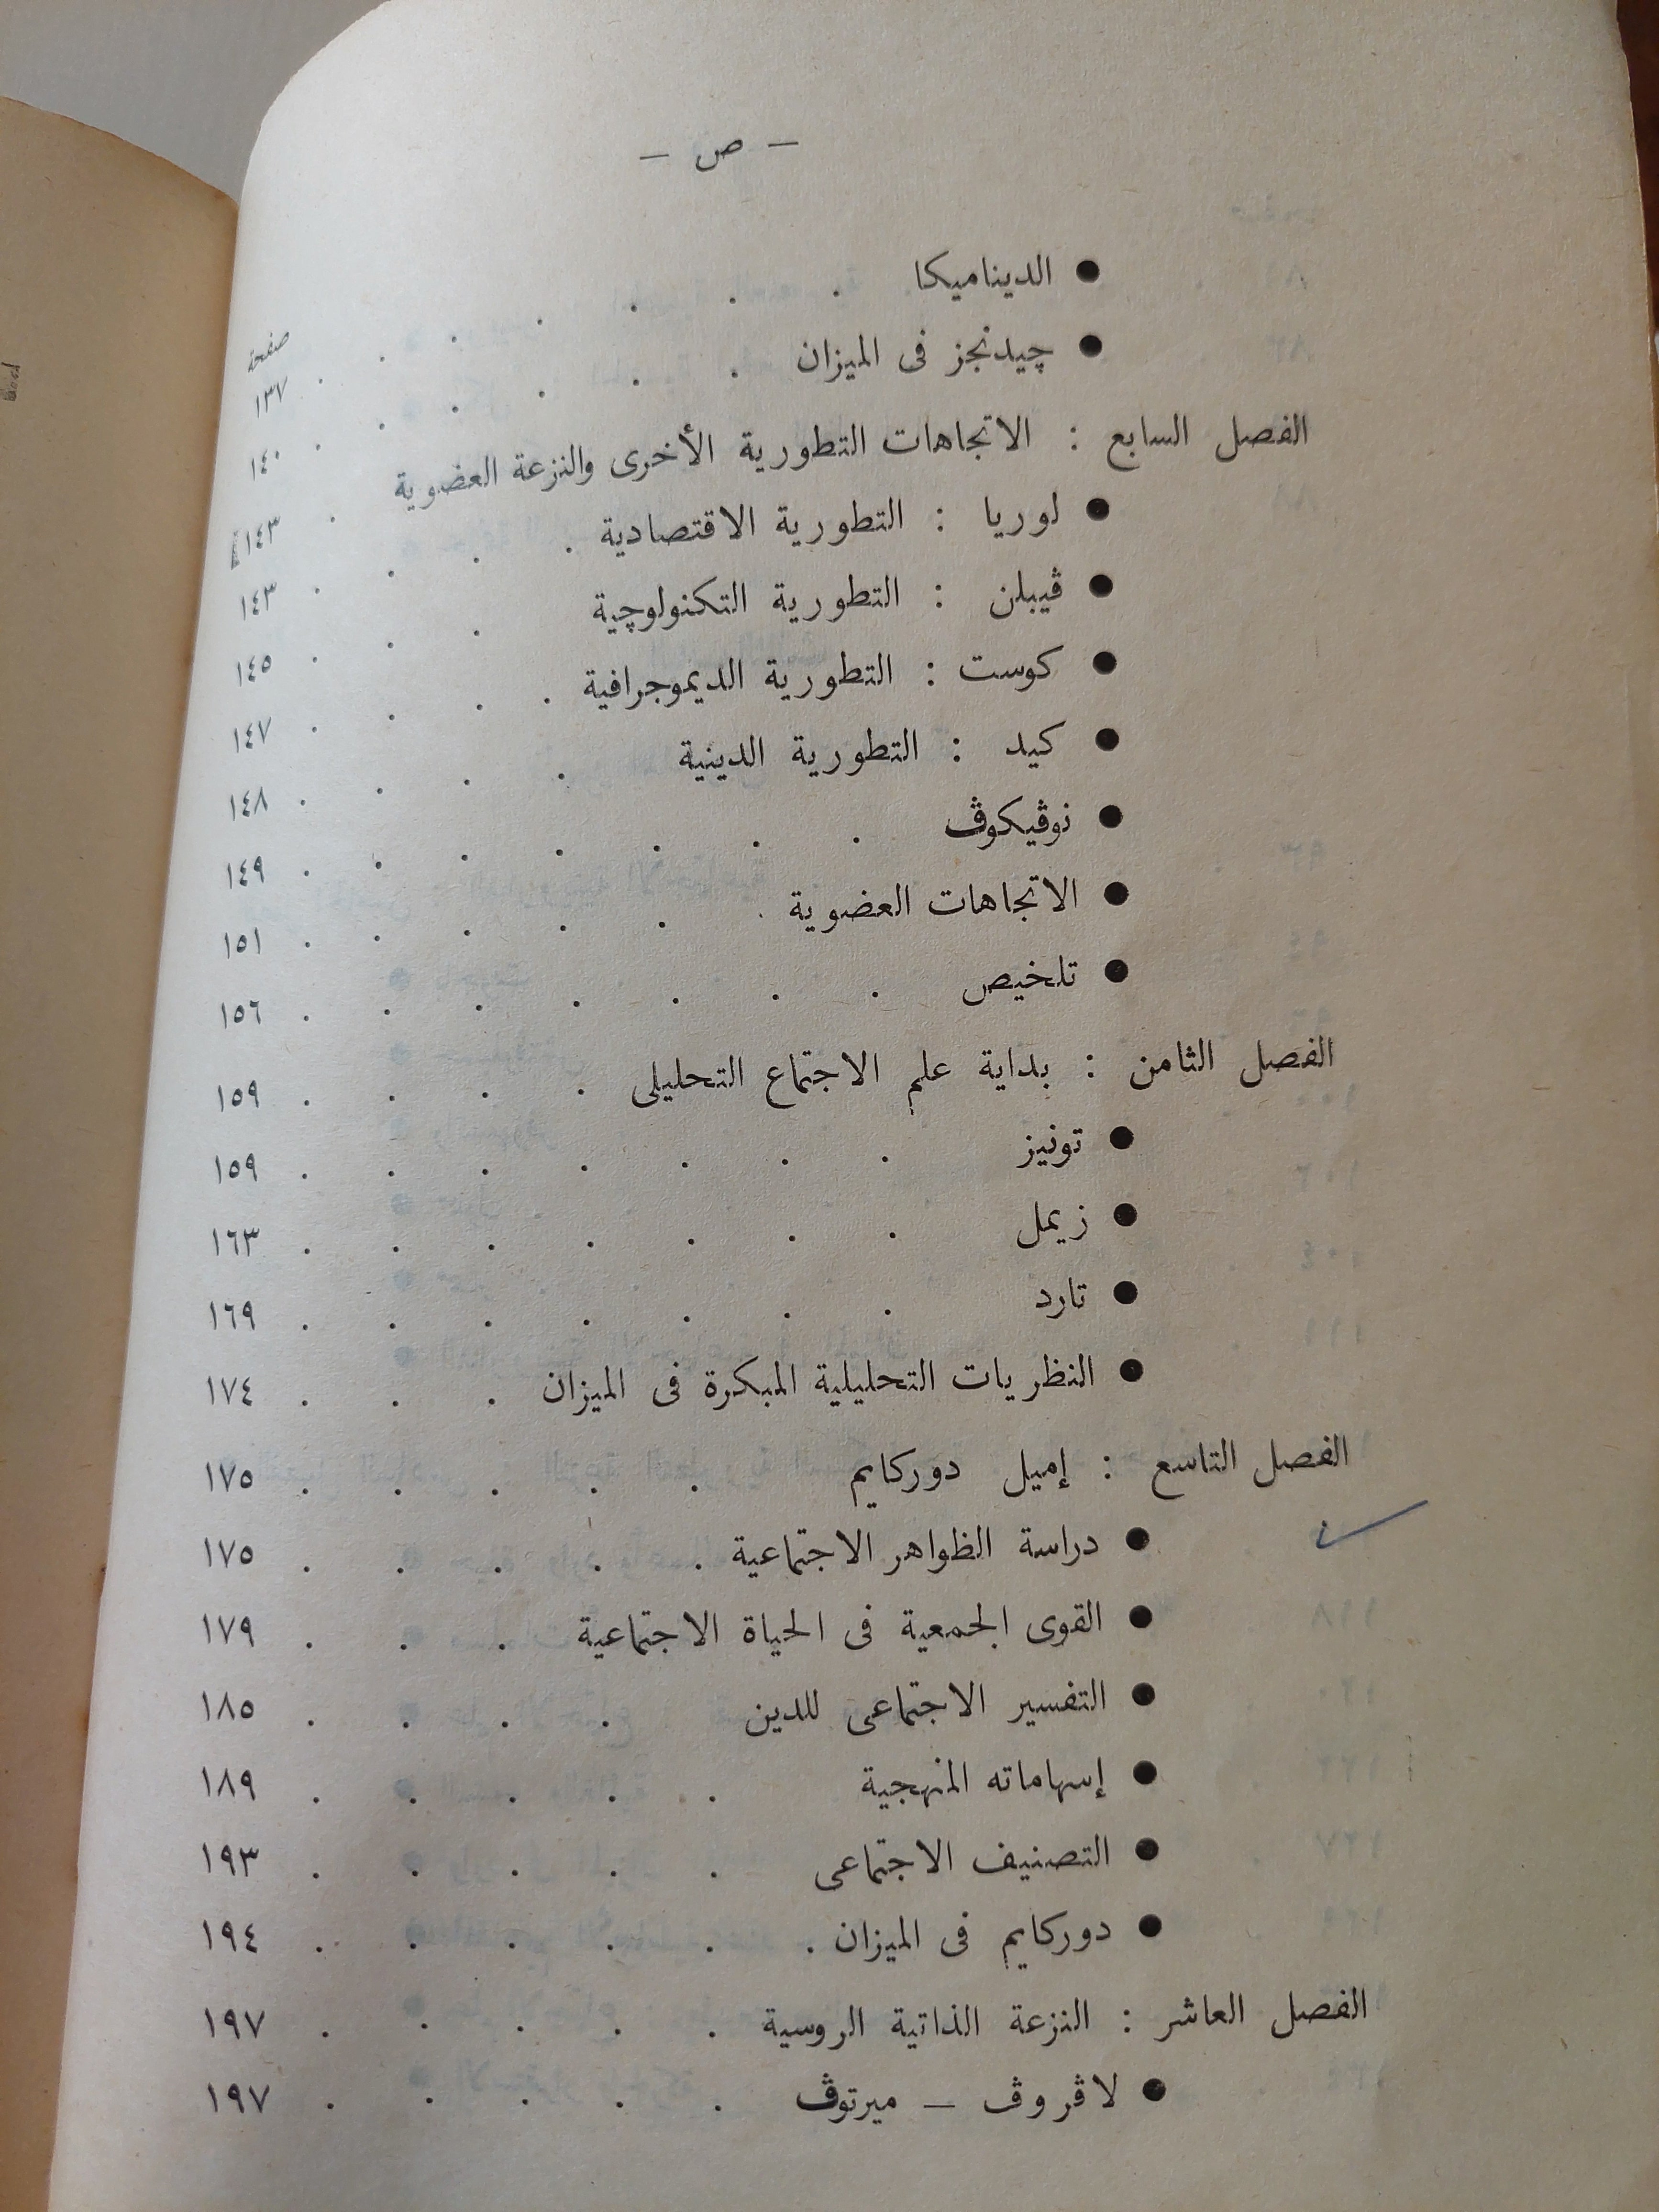 — ص —
صفحة
● الديناميكا . . . . . . . ١٣٧
● چيدنجز فى الميزان . . . . . . . ١٤٠
الفصل السابع : الاتجاهات التطورية الأخرى والنزعة العضوية . ١٤٣
● لوريا : التطورية الاقتصادية . . . . ١٤٣
● ڤيبلن : التطورية التكنولوچية . . . ١٤٥
● كوست : التطورية الديموجرافية . . . . ١٤٧
● كيد : التطورية الدينية . . . . ١٤٨
● نوڤيكوڤ . . . . . . . ١٤٩
● الاتجاهات العضوية . . . . . . ١٥١
● تلخيص . . . . . . . ١٥٦
الفصل الثامن : بداية علم الاجتماع التحليلى . . . . ١٥٩
● تونيز . . . . . . . ١٥٩
● زيمل . . . . . . . ١٦٣
● تارد . . . . . . . ١٦٩
● النظريات التحليلية المبكرة فى الميزان . . . ١٧٤
الفصل التاسع : إميل دوركايم . . . . . ١٧٥
● دراسة الظواهر الاجتماعية . . . . . ١٧٥
● القوى الجمعية فى الحياة الاجتماعية . . . ١٧٩
● التفسير الاجتماعى للدين . . . . ١٨٥
● إسهاماته المنهجية . . . . . ١٨٩
● التصنيف الاجتماعى . . . . . ١٩٣
● دوركايم فى الميزان . . . . . . ١٩٤
الفصل العاشر : النزعة الذاتية الروسية . . . . . ١٩٧
● لاڤروڤ — ميرتوڤ . . . . . ١٩٧